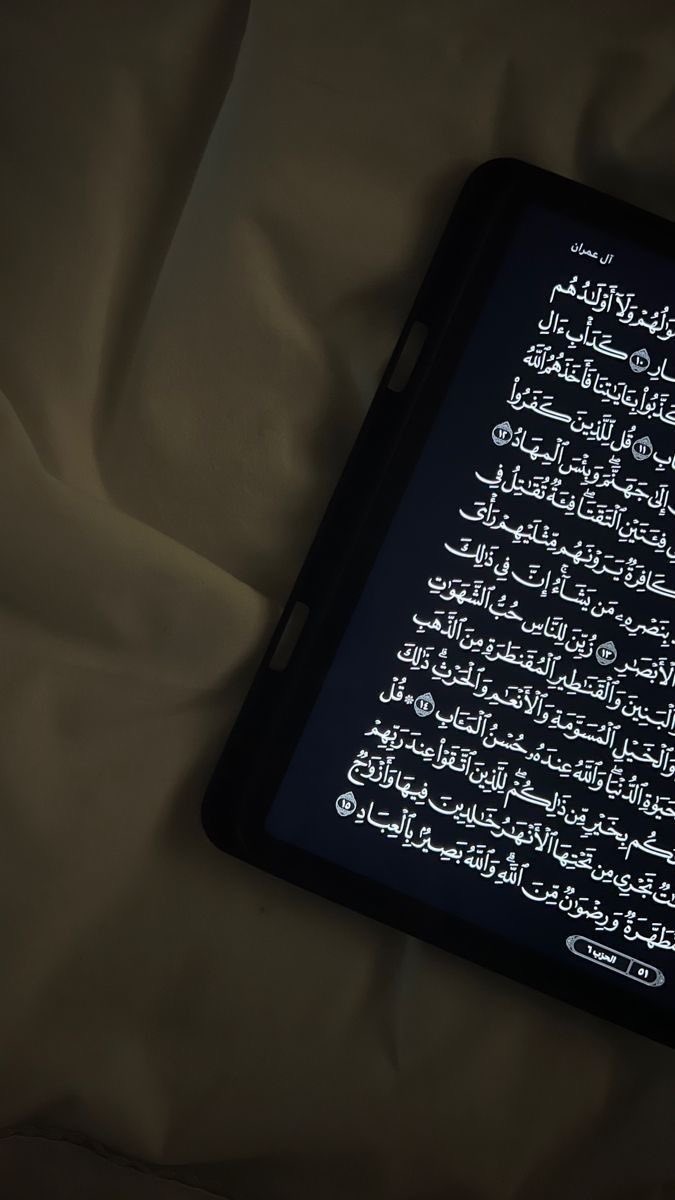 آل عمران
وَلَآ أَوْلَٰدُهُم
١٠ كَدَأْبِ ءَالِ
كَذَّبُوا۟ بِـَٔايَٰتِنَا فَأَخَذَهُمُ ٱللَّهُ
١١ قُل لِّلَّذِينَ كَفَرُوا۟
إِلَىٰ جَهَنَّمَ ۖ وَبِئْسَ ٱلْمِهَادُ ١٢
فِئَتَيْنِ ٱلْتَقَتَا ۖ فِئَةٌ تُقَٰتِلُ فِى
كَافِرَةٌ يَرَوْنَهُم مِّثْلَيْهِمْ رَأْىَ
بِنَصْرِهِۦ مَن يَشَآءُ ۗ إِنَّ فِى ذَٰلِكَ
ٱلْأَبْصَٰرِ ١٣ زُيِّنَ لِلنَّاسِ حُبُّ ٱلشَّهَوَٰتِ
وَٱلْبَنِينَ وَٱلْقَنَٰطِيرِ ٱلْمُقَنطَرَةِ مِنَ ٱلذَّهَبِ
وَٱلْخَيْلِ ٱلْمُسَوَّمَةِ وَٱلْأَنْعَٰمِ وَٱلْحَرْثِ ۗ ذَٰلِكَ
ٱلدُّنْيَا ۖ وَٱللَّهُ عِندَهُۥ حُسْنُ ٱلْمَـَٔابِ ١٤ ۞ قُلْ
بِخَيْرٍ مِّن ذَٰلِكُمْ ۚ لِلَّذِينَ ٱتَّقَوْا۟ عِندَ رَبِّهِمْ
تَجْرِى مِن تَحْتِهَا ٱلْأَنْهَٰرُ خَٰلِدِينَ فِيهَا وَأَزْوَٰجٌ
وَرِضْوَٰنٌ مِّنَ ٱللَّهِ ۗ وَٱللَّهُ بَصِيرٌۢ بِٱلْعِبَادِ ١٥
٥١ الحزب ٦